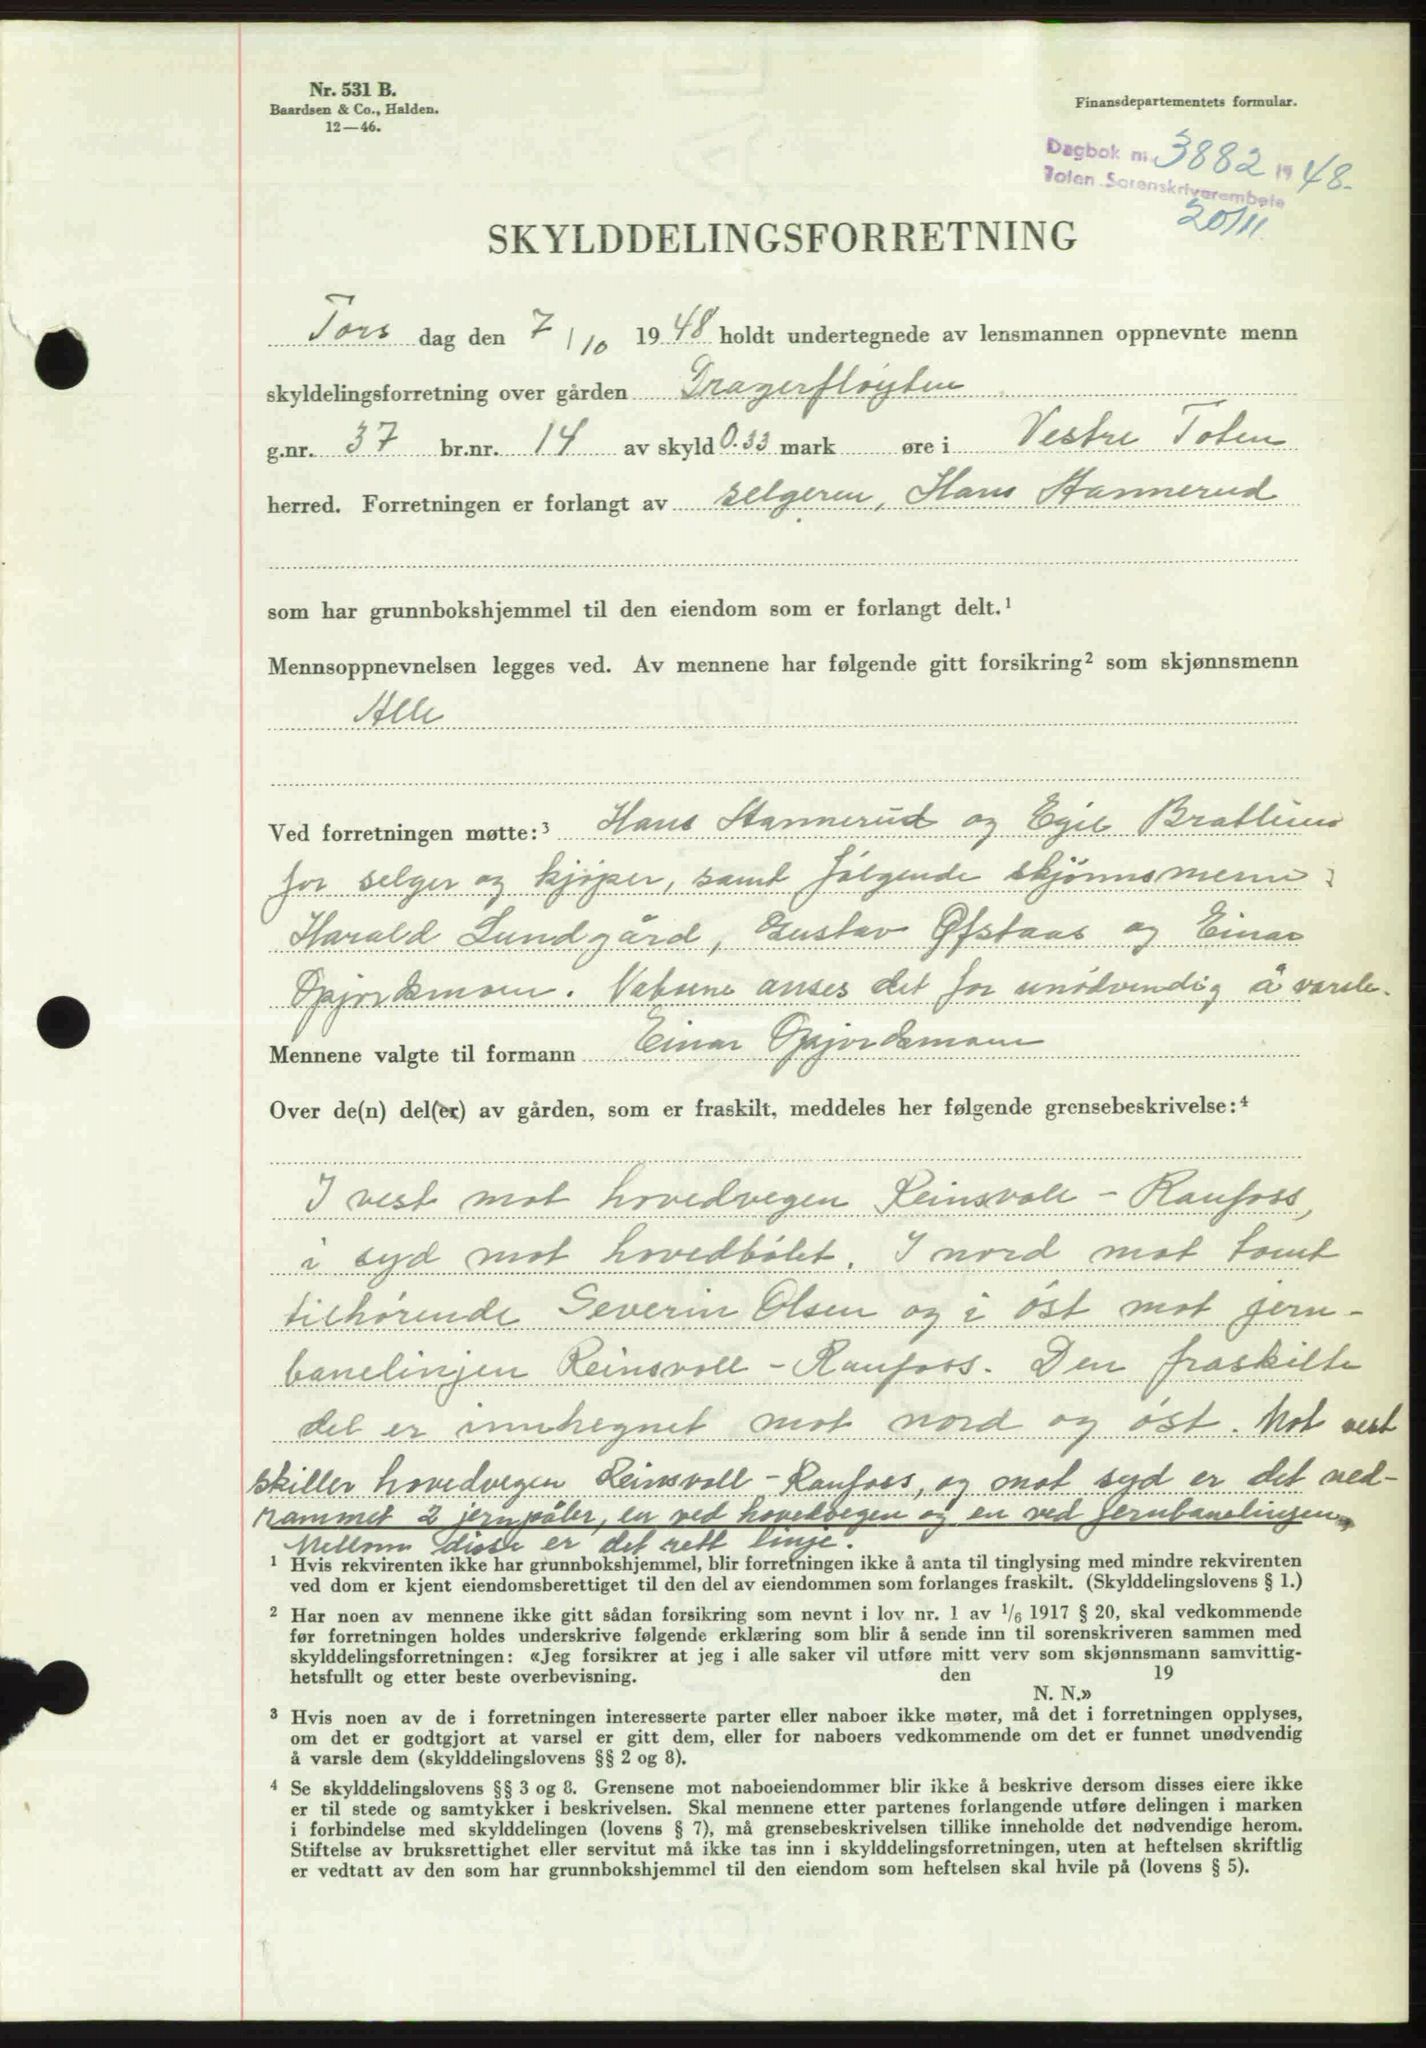 Nr. 531 B.
Baardsen & Co., Halden.
12—46.
Finansdepartementets formular.
Dagbok nr. 3882 1948.
Toten Sorenskriverembete
20/11
SKYLDDELINGSFORRETNING
Tors dag den 7/10 1948 holdt undertegnede av lensmannen oppnevnte menn
skyldelingsforretning over gården Dragerfløyten
g.nr. 37 br.nr. 14 av skyld 0.33 mark øre i Vestre Toten
herred. Forretningen er forlangt av selgeren, Hans Stannerud
som har grunnbokshjemmel til den eiendom som er forlangt delt.¹
Mennsoppnevnelsen legges ved. Av mennene har følgende gitt forsikring² som skjønnsmenn
Alle
Ved forretningen møtte:³ Hans Stannerud og Egil Bratlien
for selger og kjøper, samt følgende skjønnsmenn:
Harald Lundgård, Gustav Øfstaas og Einar
Opjordsmoen. Naboene anses det for unødvendig å varsle.
Mennene valgte til formann Einar Opjordsmoen
Over de(n) del(er) av gården, som er fraskilt, meddeles her følgende grensebeskrivelse:⁴
I vest mot hovedvegen Reinsvoll - Raufoss,
i syd mot hovedbølet. I nord mot tomt
tilhørende Severin Olsen og i øst mot jern-
banelinjen Reinsvoll - Raufoss. Den fraskilte
del er innhegnet mot nord og øst. Mot vest
skiller hovedvegen Reinsvoll - Raufoss, og mot syd er det ned-
rammet 2 jernpåler, en ved hovedvegen og en ved jernbanelinjen.
Mellom disse er det rett linje.
¹ Hvis rekvirenten ikke har grunnbokshjemmel, blir forretningen ikke å anta til tinglysing med mindre rekvirenten
ved dom er kjent eiendomsberettiget til den del av eiendommen som forlanges fraskilt. (Skylddelingslovens § 1.)
² Har noen av mennene ikke gitt sådan forsikring som nevnt i lov nr. 1 av 1/6 1917 § 20, skal vedkommende
før forretningen holdes underskrive følgende erklæring som blir å sende inn til sorenskriveren sammen med
skylddelingsforretningen: «Jeg forsikrer at jeg i alle saker vil utføre mitt verv som skjønnsmann samvittig-
hetsfullt og etter beste overbevisning. den 19
N. N.»
³ Hvis noen av de i forretningen interesserte parter eller naboer ikke møter, må det i forretningen opplyses,
om det er godtgjort at varsel er gitt dem, eller for naboers vedkommende om det er funnet unødvendig
å varsle dem (skylddelingslovens §§ 2 og 8).
⁴ Se skylddelingslovens §§ 3 og 8. Grensene mot naboeiendommer blir ikke å beskrive dersom disses eiere ikke
er til stede og samtykker i beskrivelsen. Skal mennene etter partenes forlangende utføre delingen i marken
i forbindelse med skylddelingen (lovens § 7), må grensebeskrivelsen tillike inneholde det nødvendige herom.
Stiftelse av bruksrettighet eller servitut må ikke tas inn i skylddelingsforretningen, uten at heftelsen skriftlig
er vedtatt av den som har grunnbokshjemmel til den eiendom som heftelsen skal hvile på (lovens § 5).